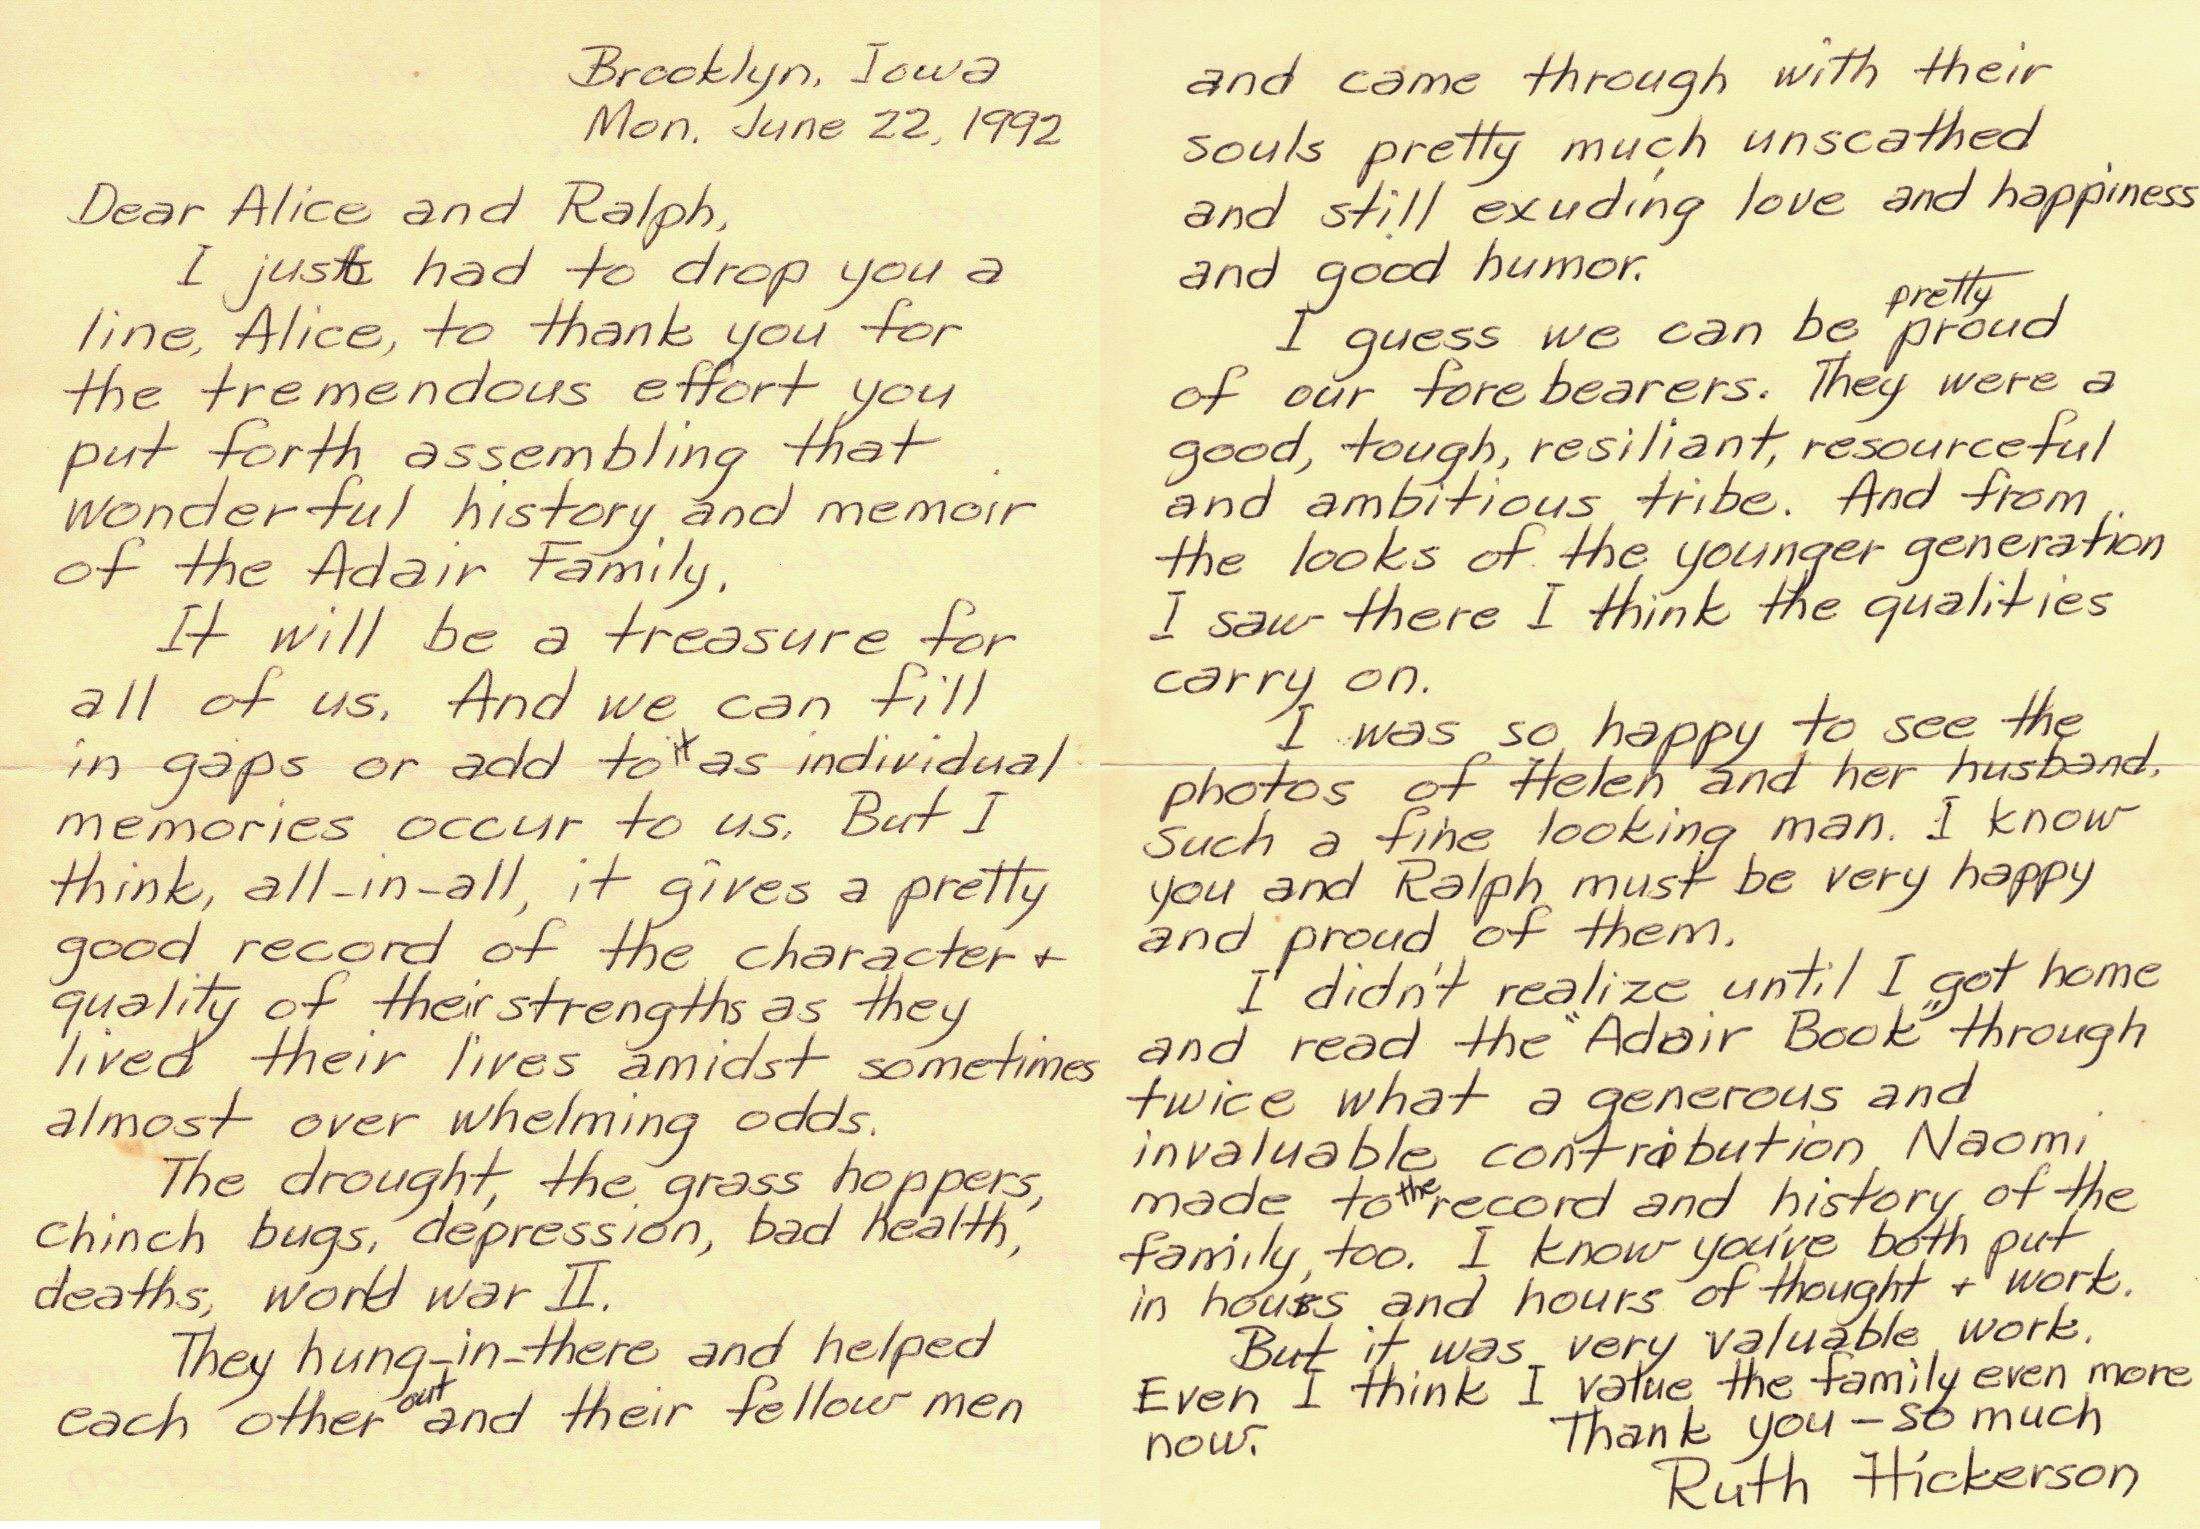 Brooklyn, Iowa
Mon. June 22, 1992
Dear Alice and Ralph,
I just had to drop you a
line, Alice, to thank you for
the tremendous effort you
put forth assembling that
wonderful history and memoir
of the Adair Family.
It will be a treasure for
all of us. And we can fill
in gaps or add to it as individual
memories occur to us. But I
think, all-in-all, it gives a pretty
good record of the character +
quality of their strengths as they
lived their lives amidst sometimes
almost over whelming odds.
The drought, the grass hoppers,
chinch bugs, depression, bad health,
deaths, world war II.
They hung-in-there and helped
each other out and their fellow men
and came through with their
souls pretty much unscathed
and still exuding love and happiness
and good humor.
I guess we can be pretty proud
of our fore bearers. They were a
good, tough, resiliant, resourceful
and ambitious tribe. And from
the looks of the younger generation
I saw there I think the qualities
carry on.
I was so happy to see the
photos of Helen and her husband.
Such a fine looking man. I know
you and Ralph must be very happy
and proud of them.
I didn't realize until I got home
and read the "Adair Book" through
twice what a generous and
invaluable contribution Naomi
made to the record and history of the
family, too. I know you've both put
in hours and hours of thought + work.
But it was very valuable work.
Even I think I value the family even more
now.
Thank you - so much
Ruth Hickerson